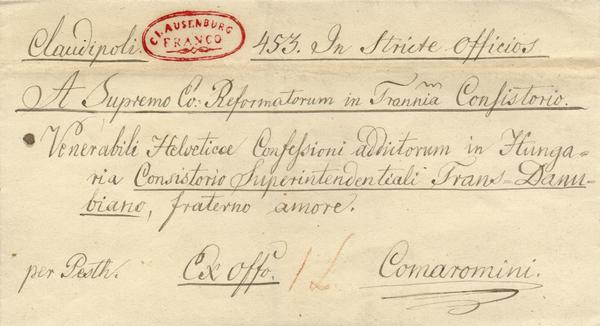 Claudipoli. CLAUSENBURG FRANCO 453. In Stricte Officios
A Supremo Co: Reformatorum in Trannia Consistorio.
Venerabili Helveticae Confessioni additorum in Hunga-
ria Consistorio Superintendentiali Trans=Danu-
biano, fraterno amore.
per Pesth. Ex Offo. Comaromini.